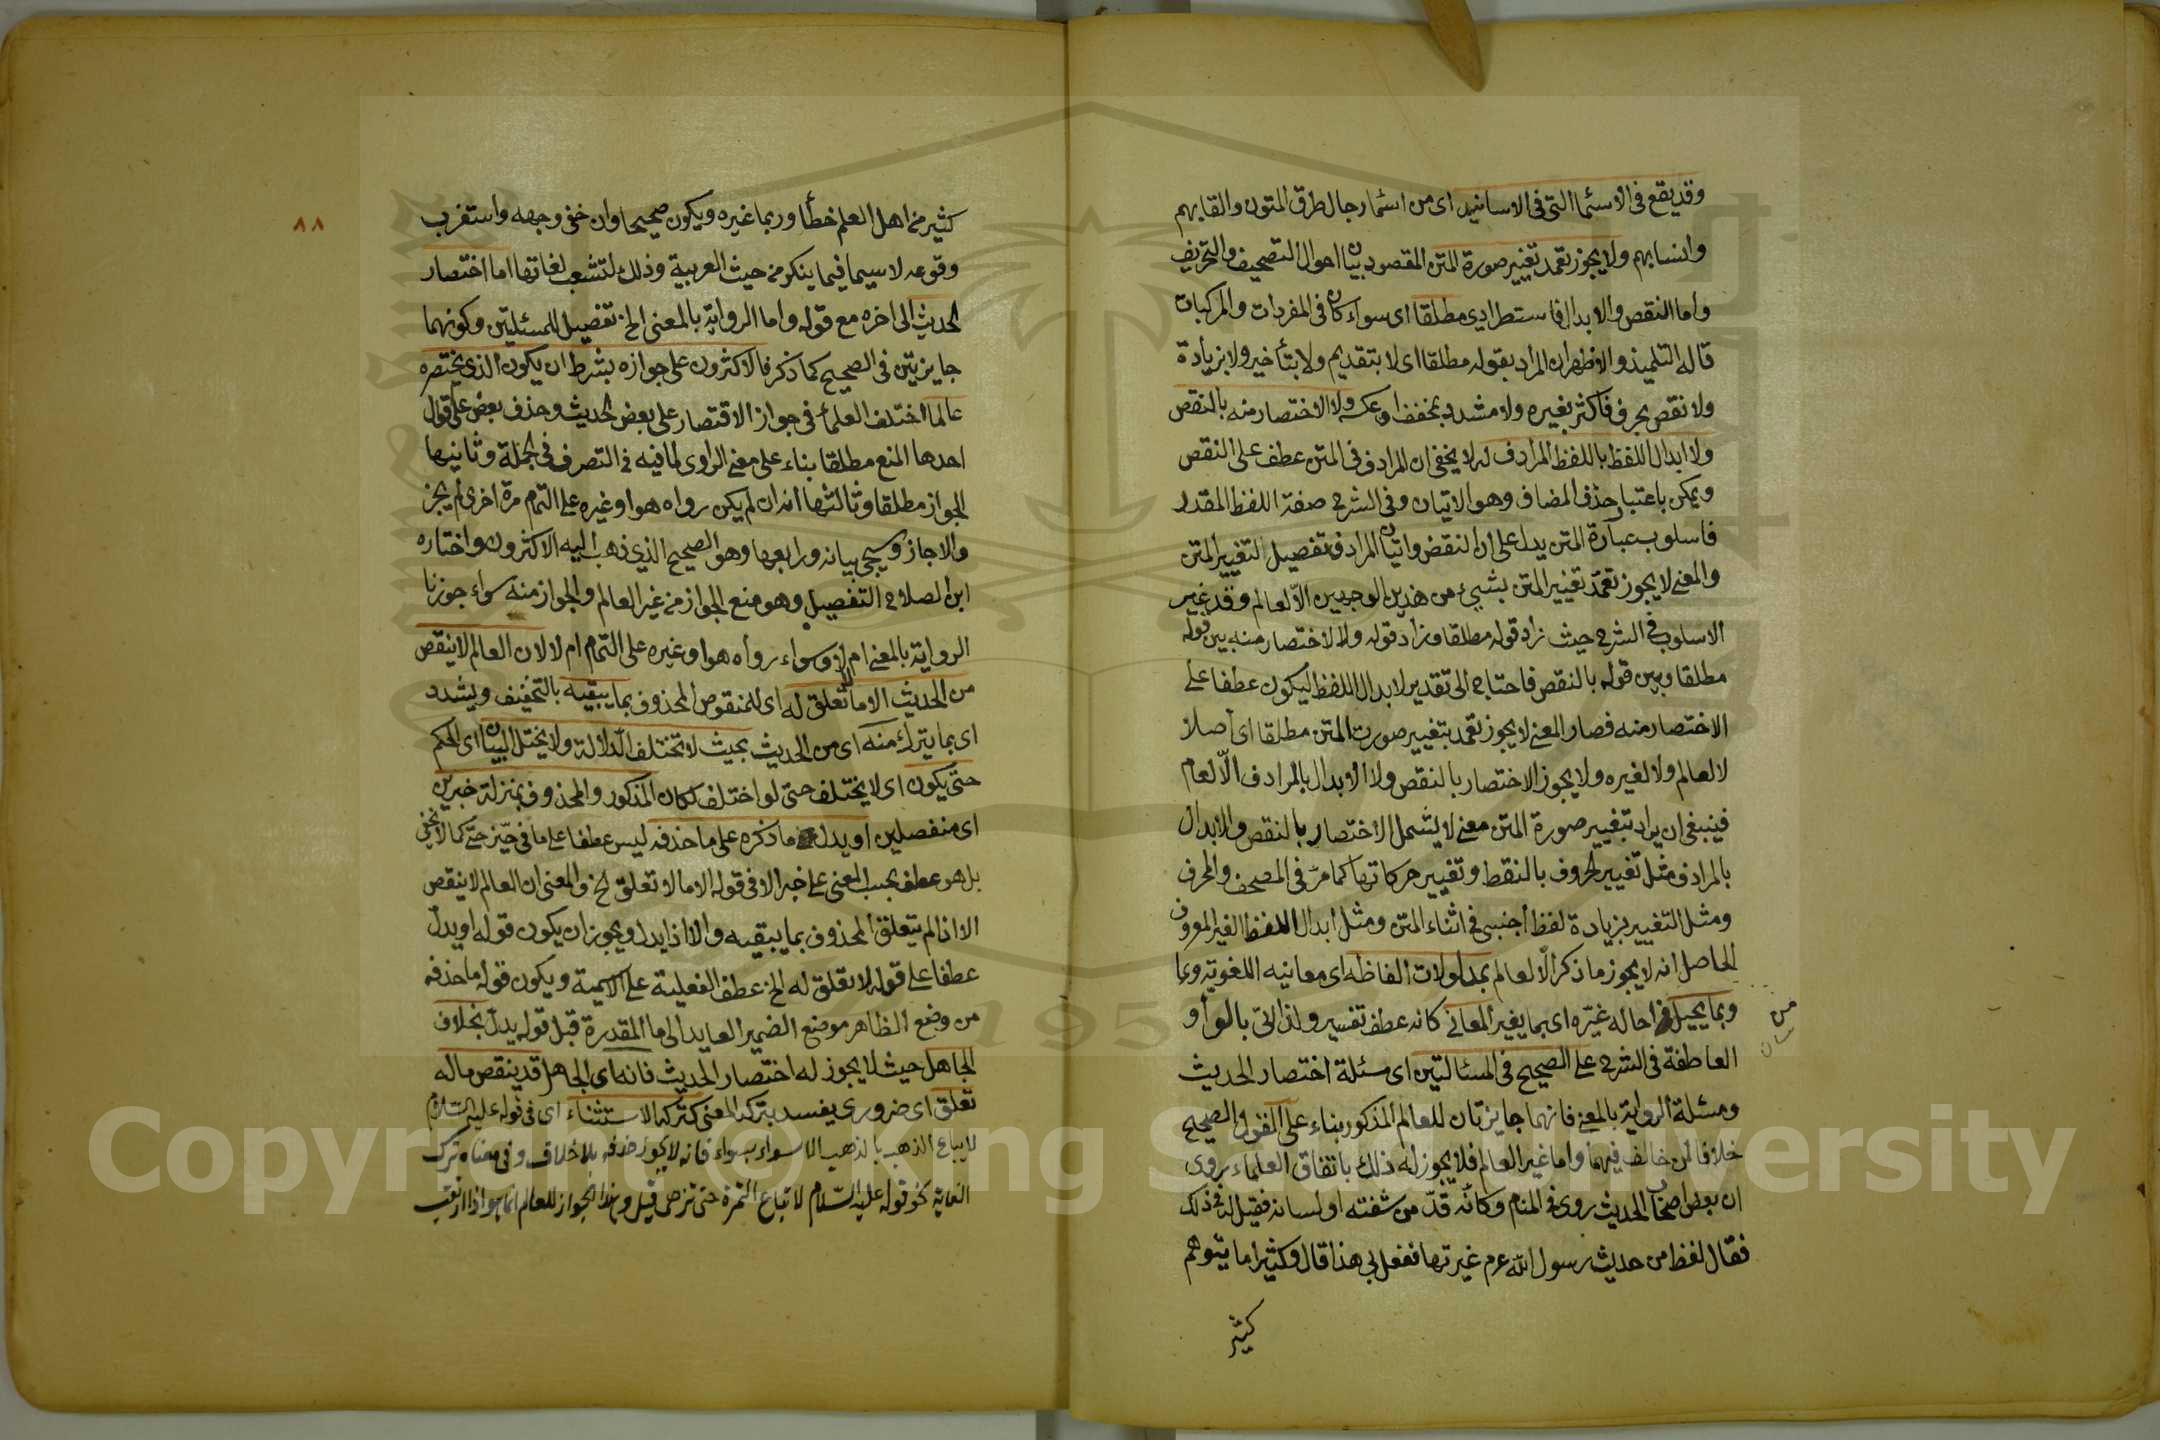 وقد يقع في الاسما التي في الاسانيد اى من اسما رجال طرق المتون والقابهم
وانسابهم ولا يجوز تعمد تغيير صورة المتن المقصود بيان احوال التصحيف والتحريف
واما النقص والابدال فاستطرادى مطلقا اى سواء كان في المفردات والمركبات
قاله التلميذ والاظهر ان المراد بقوله مطلقا اى لا بتقديم ولا بتأخير ولا بزيادة
ولا نقص بحرف فاكثر بغيره ولا مشدد بمخفف او عكسه ولا الاختصار منه بالنقص
ولا ابدال اللفظ باللفظ المرادف له لا يخفى ان المرادف في المتن عطف على النقص
ويمكن باعتبار حذف المضاف وهو الاتيان وفي الشرح صفة اللفظ المقدر
فاسلوب عبارة المتن يدل على ان النقض واتيان المرادف تفصيل التغيير المتن
والمعنى لا يجوز تعمّد تغيير المتن بشيء من هذين الوجهين الّا لعالم وقد غير
الاسلوب في الشرح حيث زاد قوله مطلقا وزاد قوله ولا الاختصار منه بين قوله
مطلقا وبين قوله بالنقص فاحتاج الى تقدير لابدال اللفظ ليكون عطفا على
الاختصار منه فصار المعنى لا يجوز تعمد بتغيير صورت المتن مطلقا اى اصلا
لا لعالم ولا لغيره ولا يجوز الاختصار بالنقص ولا الابدال بالمرادف الّا لعام
فينبغى ان يراد بتغيير صورة المتن معنى لا يشمل الاختصار بالنقص والابدال
بالمرادف مثل تغيير الحروف بالنقط وتغيير حركاتها كما مرّ في المصحف والمحرف
ومثل التغيير بزيادة لفظ اجنبى في اثناء المتن ومثل ابدال اللفظ الغير المعروف
الحاصل انه لا يجوز ما ذكر الّا لعالم بمدلولات الفاظه اى معانيه اللغوية وبما
وبما يحيل من احاله غيّره اى بما يغير المعاني كانه عطف تفسير ولذا اتى بالواو
العاطفة في الشرح على الصحيح في المسئالتين اى مسئلة اختصار الحديث
ومسئلة الرواية بالمعنى فانهما جايزتان للعالم المذكور بناء على القول الصحيح
خلافا لمن خالف فيهما واما غير العالم فلا يجوز له ذلك باتفاق العلماء روى
ان بعض اصحاب الحديث روى في المنام وكأنّه قدّ من شفته او لسانه فقيل له في ذلك
فقال لفظ من حديث رسول الله عم غيرتها ففعل بي هذا قال وكثيرا ما يتوهم
كثير
٨٨
كثير من اهل العلم خطأ وربما غيره ويكون صحيحا وان خفى وجهه واستغرب
وقوعه لا سيما فيما ينكر من حيث العربية وذلك لتشعب لغاتها اما اختصار
الحديث الى اخره مع قوله واما الرواية بالمعنى الخ تفصيل للمسئلتين وكونهما
جايزتين في الصحيح كما ذكر فالاكثرون على جوازه بشرط ان يكون الذى يختصره
عالما اختلف العلماء في جواز الاقتصار على بعض الحديث وحذف بعض على اقوال
احدها المنع مطلقا بناء على معنى الراوى لما فيه من التصرف في الجملة وثانيها
الجواز مطلقا وثالثها انه ان لم يكن رواه هو او غيره على التمام مرة اخرى لم يجز
والا جاز وسيجئ بيانه ورابعها وهو الصحيح الذى ذهب اليه الاكثرون واختاره
ابن الصلاح التفصيل وهو منع الجواز من غير العالم والجواز منه سواء جوزنا
الرواية بالمعنى ام لا وسواء رواه هو او غيره على التمام ام لا لان العالم لا ينقص
من الحديث الا ما تعلق له اى للمنقوص المحذوف بما يبقيه بالتخفيف ويشدد
اى بما يترك منه اى من الحديث بحيث لا تختلف الدلالة ولا يختل البيان اى الحكم
حتى يكون اى لا يختلف حتى لو اختلف لكان المذكور والمحذوف بمنزلة خبرين
اى منفصلين او يدل ما ذكره على ما حذفه ليس عطفا على ما في حيّز حتى كما لا يخفى
بل هو عطف بحسب المعنى على خبر الا في قوله الا ما لا تعلق الخ والمعنى ان العالم لا ينقص
الا اذا لم يتعلق المحذوف بما يبقيه والا اذا يدل ويجوز ان يكون قوله او يدل
عطفا على قوله لا تعلق له الخ عطف الفعلية على الاسمية ويكون قوله ما حذفه
من وضع الظاهر موضع الضمير العايد الى ما المقدرة قبل قوله يدل بخلاف
الجاهل حيث لا يجوز له اختصار الحديث فانه اى الجاهل قد ينقص ما له
تعلق اى ضرورى يفسد بتركه المعنى كتركه الاستثناء اى في قوله عليه السّلام
لا يباع الذهب بالذهب الا سواء بسواء فانه لا يجوز حذفه بلا خلاف وفي معناه ترك
الغاية نحو قوله عليه السّلام لا تباع الثمرة حتى تزهى قيل وهذا الجواز للعالم انما هو اذا ارتفعت